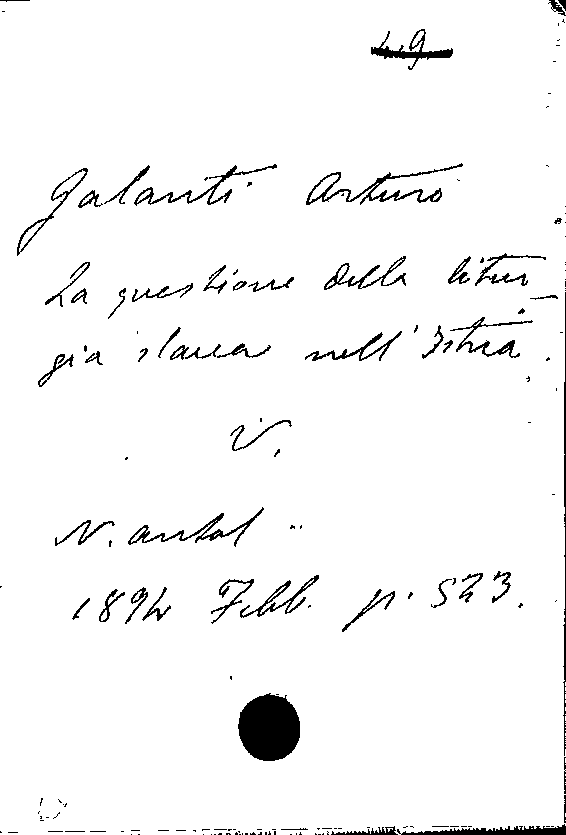 49
Galanti Arturo
La questione della litur_
gia slava nell'Istria.
V.
N. antol..
1894 Febb. p. 523.